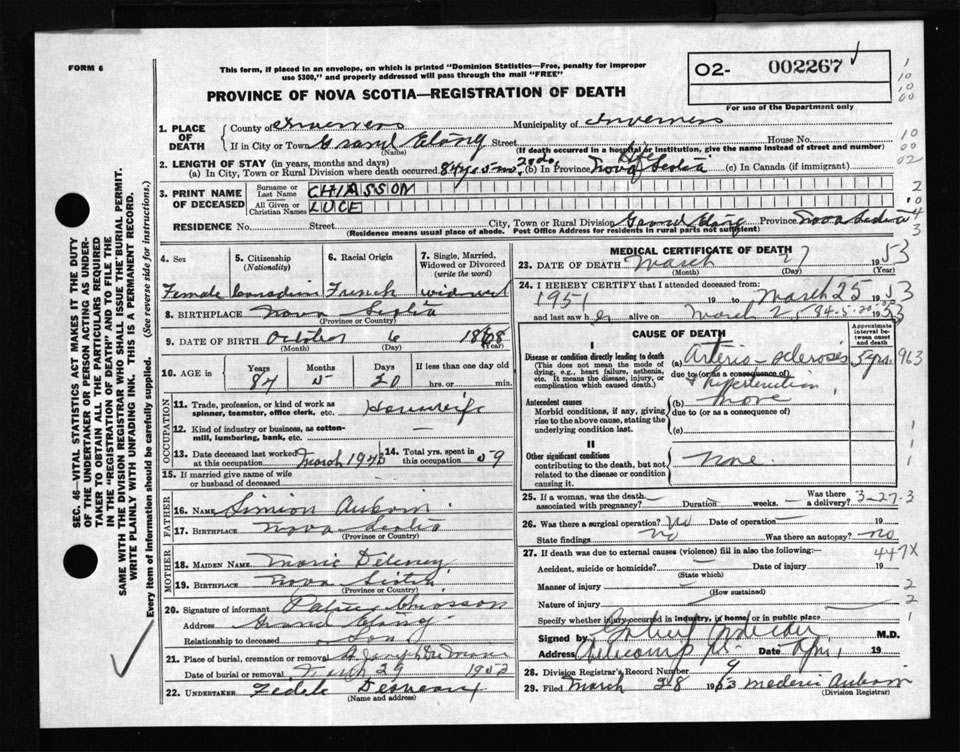 FORM 6
This form, if placed in an envelope, on which is printed "Dominion Statistics—Free, penalty for improper
use $300," and properly addressed will pass through the mail "FREE"
PROVINCE OF NOVA SCOTIA—REGISTRATION OF DEATH
O2- 002267
For use of the Department only
1. PLACE OF DEATH
County of Inverness Municipality of Inverness
If in City or Town Grand Etang Street House No.
(Name) (If death occurred in a hospital or institution, give the name instead of street and number)
2. LENGTH OF STAY (in years, months and days)
(a) In City, Town or Rural Division where death occurred 84 yrs. 5 mo. 20 ds. (b) In Province Life Nova Scotia (c) In Canada (if immigrant)
3. PRINT NAME OF DECEASED
Surname or Last Name CHIASSON
All Given or Christian Names LUCE
RESIDENCE No. Street City, Town or Rural Division Grand Etang Province Nova Scotia
(Residence means usual place of abode. Post Office Address for residents in rural parts not sufficient)
4. Sex Female
5. Citizenship (Nationality) Canadian
6. Racial Origin French
7. Single, Married, Widowed or Divorced (write the word) widowed
8. BIRTHPLACE Nova Scotia
(Province or Country)
9. DATE OF BIRTH October 6 1868
(Month) (Day) (Year)
10. AGE Years 84 Months 5 Days 20 If less than one day old hrs. or min.
OCCUPATION
11. Trade, profession, or kind of work as spinner, teamster, office clerk, etc. Housewife
12. Kind of industry or business, as cotton-mill, lumbering, bank, etc. —
13. Date deceased last worked at this occupation March
14. Total yrs. spent in this occupation 59
15. If married give name of wife or husband of deceased
FATHER
16. Name Simion Aucoin
17. BIRTHPLACE Nova Scotia
(Province or Country)
MOTHER
18. MAIDEN NAME Marie
19. BIRTHPLACE Nova Scotia
(Province or Country)
20. Signature of informant Chiasson
Address Grand Etang
Relationship to deceased Son
21. Place of burial, cremation or removal St Joseph
Date of burial or removal March 29
22. UNDERTAKER
(Name and address)
MEDICAL CERTIFICATE OF DEATH
23. DATE OF DEATH March 27 1953
(Month) (Day) (Year)
24. I HEREBY CERTIFY that I attended deceased from:
1951 19 to March 25 1953
and last saw her alive on March 25 1953
84-5-20
CAUSE OF DEATH
Approximate interval between onset and death
I
Disease or condition directly leading to death
(This does not mean the mode of dying, e.g., heart failure, asthenia, etc. It means the disease, injury, or complication which caused death.)
(a) Arterio-sclerosis 5 yrs.
due to (or as a consequence of)
+ hypertension
Antecedent causes
Morbid conditions, if any, giving rise to the above cause, stating the underlying condition last.
(b) none
due to (or as a consequence of)
(c)
II
Other significant conditions
contributing to the death, but not related to the disease or condition causing it.
none
25. If a woman, was the death associated with pregnancy? — Duration weeks. — Was there a delivery?
3-27-3
26. Was there a surgical operation? No Date of operation — 19
State findings no Was there an autopsy? no
27. If death was due to external causes (violence) fill in also the following:—
447X
Accident, suicide or homicide? Date of injury 19
(State which)
Manner of injury
(How sustained)
Nature of injury
Specify whether injury occurred in industry, in home, or in public place
Signed by M.D.
Address Cheticamp Date April 19
28. Division Registrar's Record Number 9
29. Filed March 28 1953 Mederic Aucoin
(Division Registrar)
SEC. 46—VITAL STATISTICS ACT MAKES IT THE DUTY
OF THE UNDERTAKER OR PERSON ACTING AS UNDER-
TAKER TO OBTAIN ALL THE PARTICULARS REQUIRED
IN THE "REGISTRATION OF DEATH" AND TO FILE THE
SAME WITH THE DIVISION REGISTRAR WHO SHALL ISSUE THE BURIAL PERMIT.
WRITE PLAINLY WITH UNFADING INK. THIS IS A PERMANENT RECORD.
Every item of information should be carefully supplied. (See reverse side for instructions.)